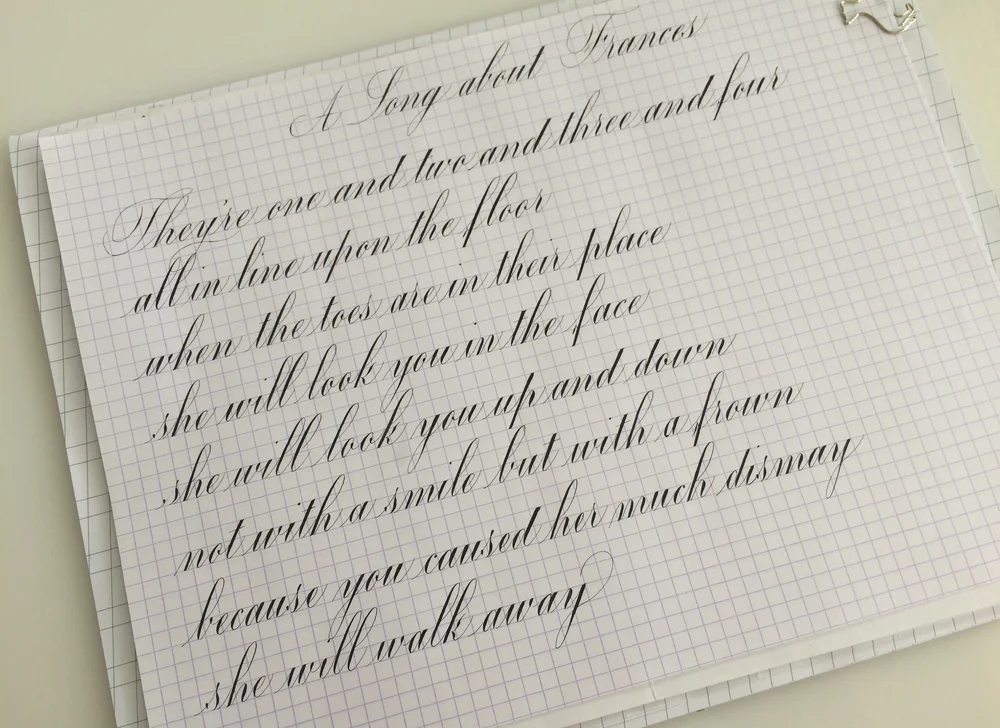 A Song about Frances
They're one and two and three and four
all in line upon the floor
when the toes are in their place
she will look you in the face
she will look you up and down
not with a smile but with a frown
because you caused her much dismay
she will walk away